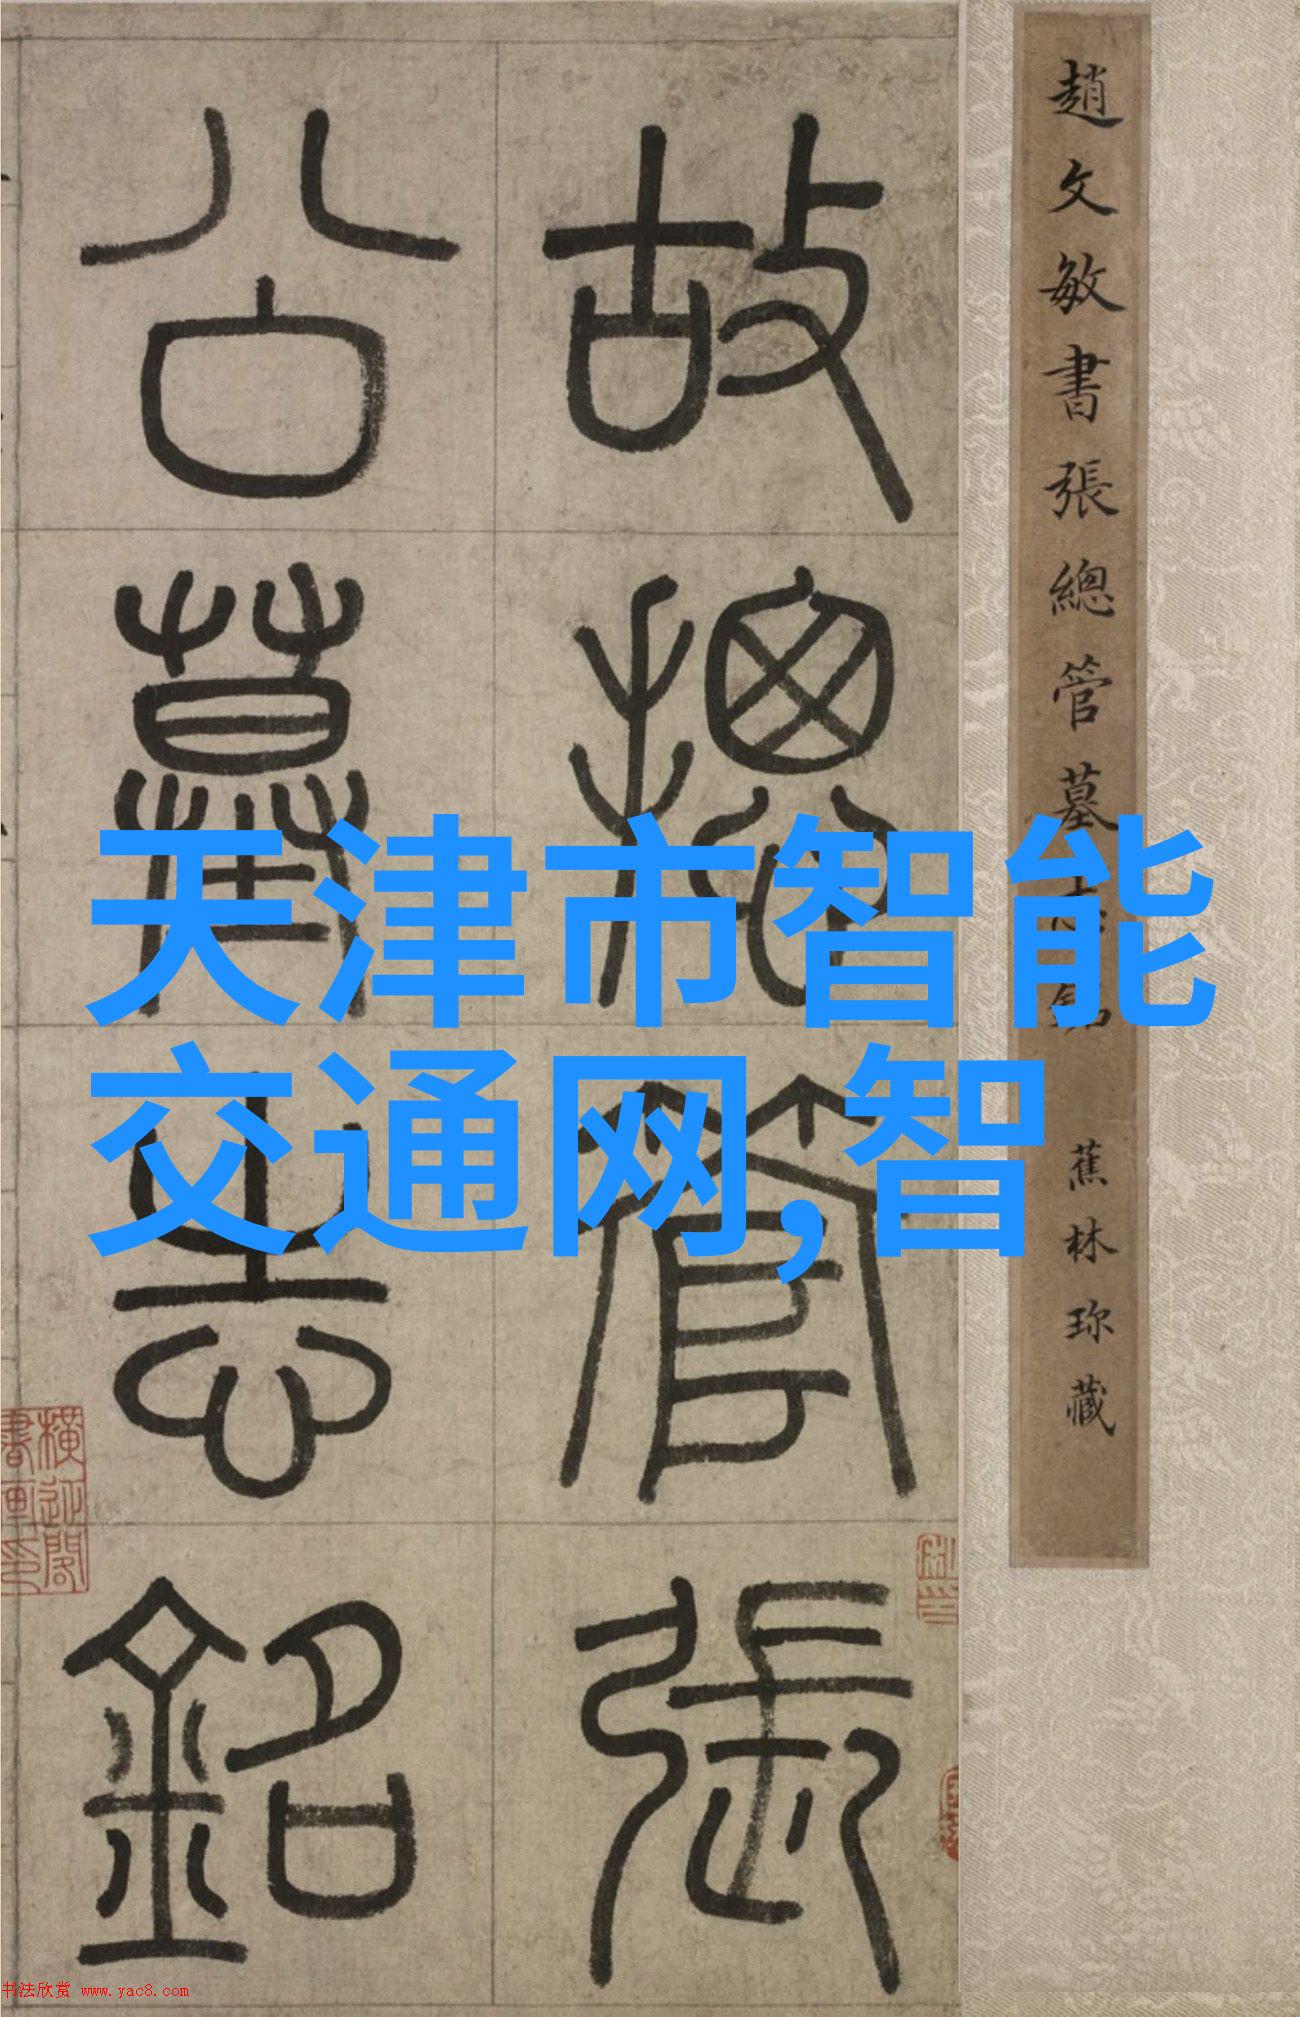 趙文敏書張總管墓志銘 蕉林珍藏
故摠管張
公墓志銘
天津市智能
交通网,智
書法欣赏 www.yac8.com